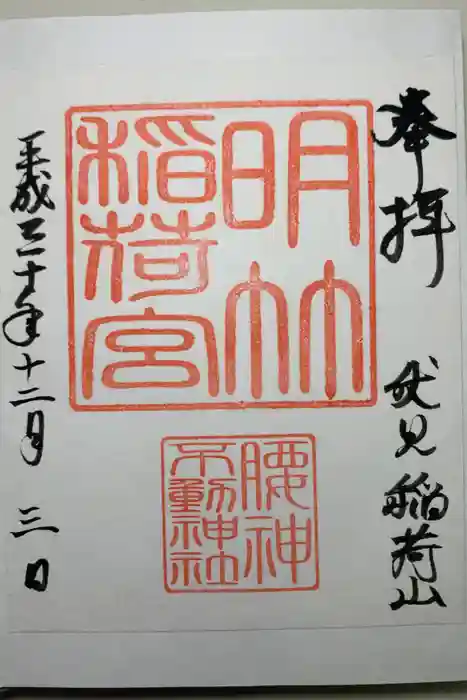 奉拝　伏見稲荷山
明竹
稲荷宮
腰神
不動神社
平成三十年十二月　三日